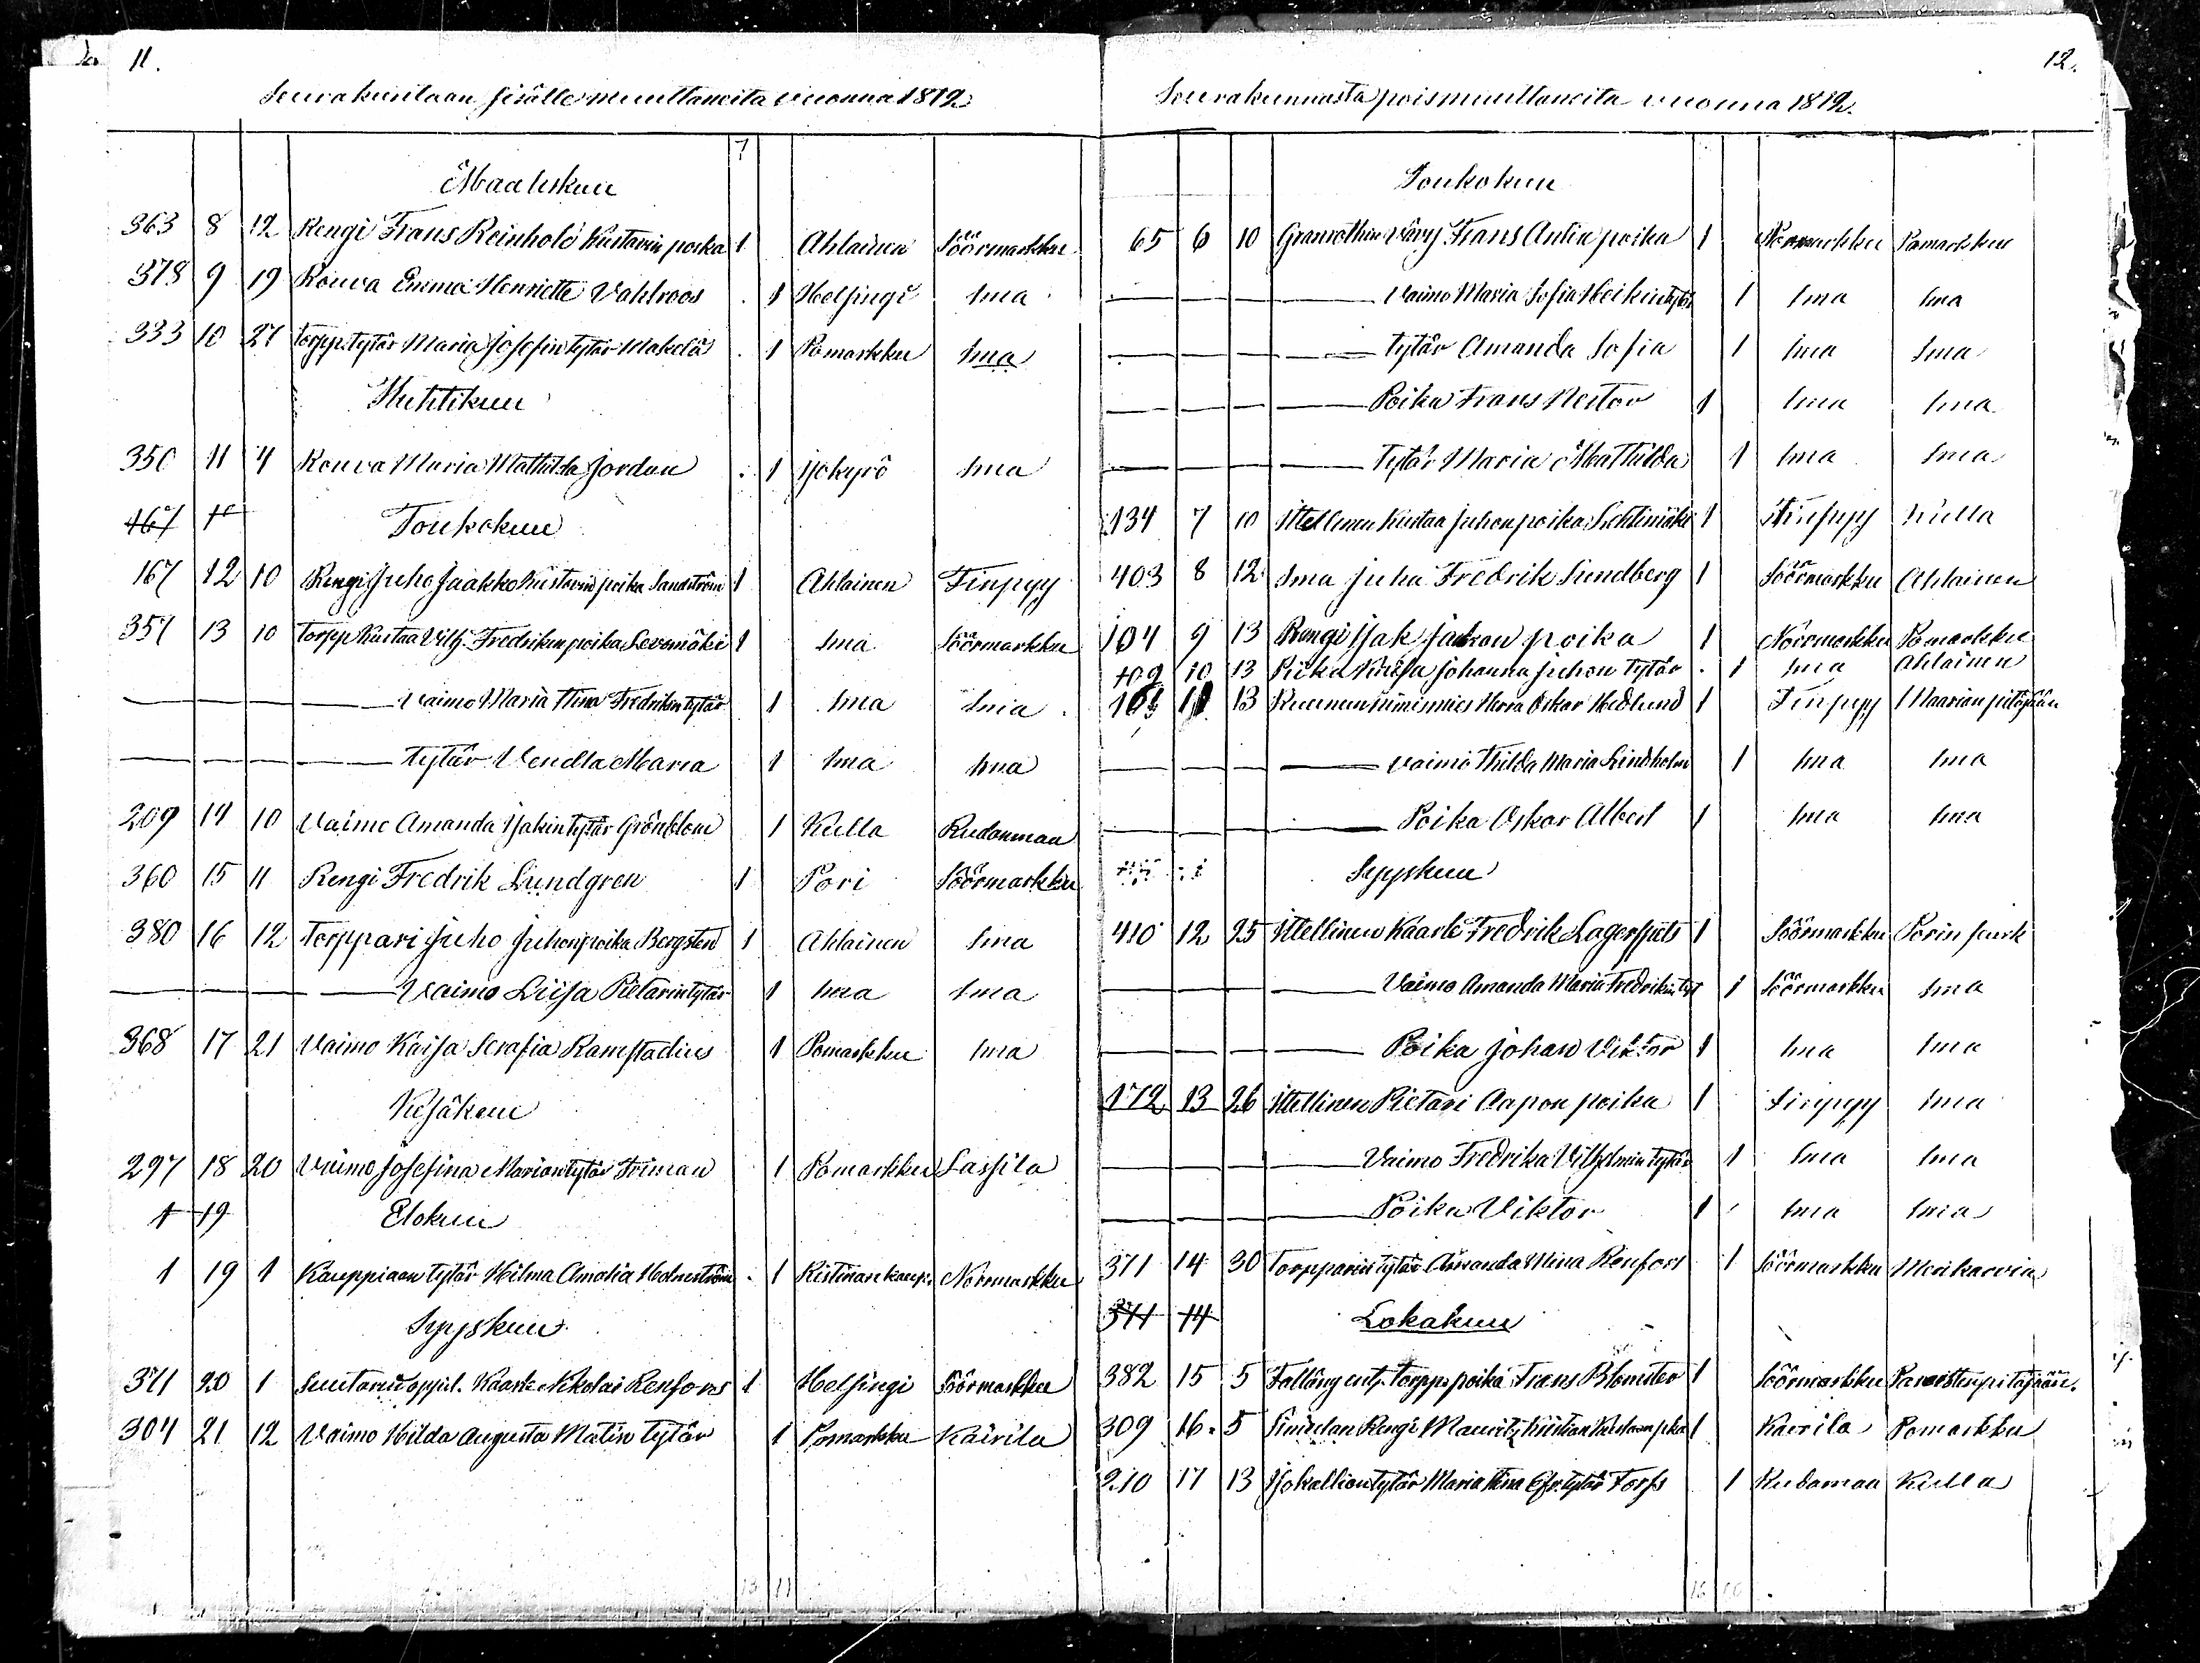 11.
Seurakuntaan sisälle muuttaneita vuonna 1872
7
Maaliskuu
363 8 12 Rengi Frans Reinhold Kustavin poika 1 Ahlainen Söörmarkku
378 9 19 Rouva Emma Henriette Vahlroos 1 Helsingi sma
333 10 27 Torpp. tytär Maria Josefin tytär Makelä 1 Pomarkku sma
Huhtikuu
350 11 4 Rouva Maria Mathilda Jordan 1 Jokyrö sma
167 12
Toukokuu
167 12 10 Rengi Juho Jaakko Kustavin poika Sandström 1 Ahlainen Finpyy
357 13 10 Torpp Kustaa Vilh. Fredrikin poika Levomäki 1 sma Söörmarkku
Vaimo Maria Stina Fredrikin tytär 1 sma sma
tytär Vendla Maria 1 sma sma
209 14 10 Vaimo Amanda Isakin tytär Grönblom 1 Kulla Rudanmaa
360 15 11 Rengi Fredrik Lundgren 1 Pori Söörmarkku
380 16 12 Torppari Juho Juhonpoika Bergsten 1 Ahlainen sma
Vaimo Liisa Pietarintytär 1 sma sma
368 17 21 Vaimo Kaisa Serafia Ramstadius 1 Pomarkku sma
Kesäkuu
297 18 20 Vaimo Josefina Mariantytär Friman 1 Pomarkku Lassila
1 19 Elokuu
1 19 1 Kauppiaan tytär Hilma Amalia Holmström 1 Kristinan kaup. Normarkku
Syyskuu
371 20 1 Suutarin oppil. Kaarle Nikolai Renfors 1 Helsingi Söörmarkku
304 21 12 Vaimo Hilda Augusta Matin tytär 1 Pomarkku Kairila
12.
Seurakunnasta poismuuttaneita vuonna 1872.
Toukokuu
65 6 10 Granrothin vävy Frans Antin poika 1 Normarkku Pomarkku
Vaimo Maria Sofia Heikintytär 1 sma sma
tytär Amanda Sofia 1 sma sma
Poika Frans Nestor 1 sma sma
Tytär Maria Mathilda 1 sma sma
134 7 10 Ittellinen Kustaa Juhonpoika Lehtimäki 1 Finpyy Kulla
403 8 12 Sma Juha Fredrik Sundberg 1 Söörmarkku Ahlainen
104 9 13 Rengi Isak Jakon poika 1 Noormarkku Pomarkku
102 10 13 Piika Kaisa Johanna Juhon tytär 1 sma Ahlainen
11 13 Ruununnimismies Herra Oskar Hedlund 1 Finpyy Maarian pitäjään
vaimo Hilda Maria Lindholm 1 sma sma
Poika Oskar Albert 1 sma sma
Syyskuu
410 12 25 Ittellinen Kaarle Fredrik Lagerspets 1 Söörmarkku Porin seurk
Vaimo Amanda Maria Fredrikin tyt 1 Söörmarkku sma
Poika Johan Viktor 1 sma sma
172 13 26 Ittellinen Pietari Aapon poika 1 Finpyy sma
Vaimo Fredrika Vilhelmin tytär 1 sma sma
Poika Viktor 1 sma sma
371 14 30 Torpparin tytär Amanda Mina Renfors 1 Söörmarkku Merikarvia
371 14
Lokakuu
382 15 5 Falläng ent. Torpp. poika Frans Blomster 1 Söörmarkku
309 16 5 Simulan Rengi Mauritz Kristian Kustaan poika 1 Kairila Pomarkku
210 17 13 Isokallion tytär Maria Stina Efr. tytär Forss 1 Rudamaa Kulla